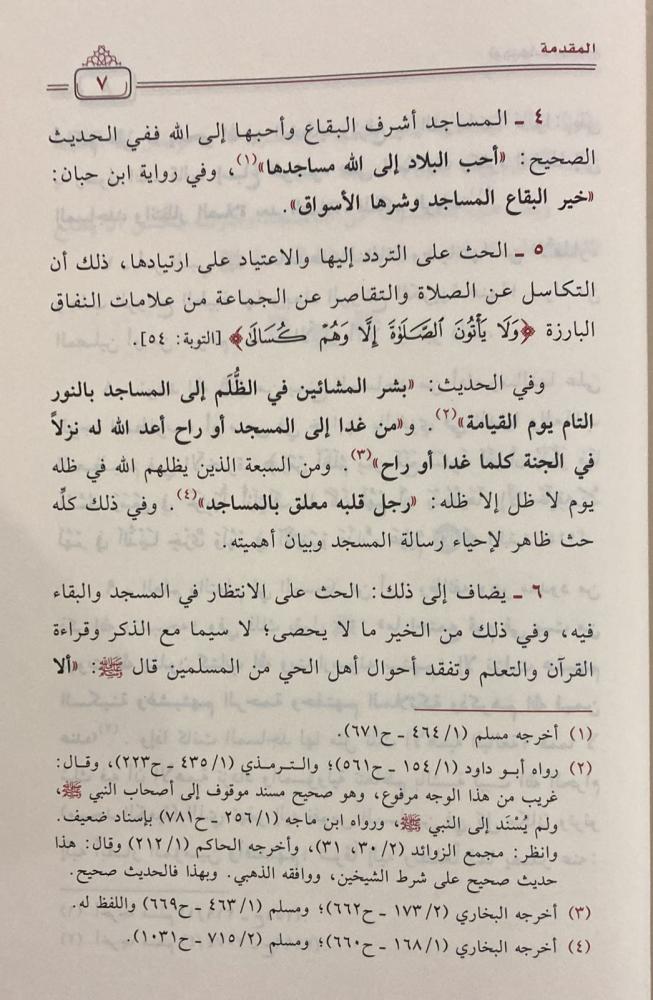 المقدمة
٧
٤ ـ المساجد أشرف البقاع وأحبها إلى الله ففي الحديث
الصحيح: «أحب البلاد إلى الله مساجدها»(١)، وفي رواية ابن حبان:
«خير البقاع المساجد وشرها الأسواق».
٥ ـ الحث على التردد إليها والاعتياد على ارتيادها، ذلك أن
التكاسل عن الصلاة والتقاصر عن الجماعة من علامات النفاق
البارزة ﴿وَلَا يَأْتُونَ ٱلصَّلَوٰةَ إِلَّا وَهُمْ كُسَالَىٰ﴾ [التوبة: ٥٤].
وفي الحديث: «بشر المشائين في الظُّلَم إلى المساجد بالنور
التام يوم القيامة»(٢). و«من غدا إلى المسجد أو راح أعد الله له نزلاً
في الجنة كلما غدا أو راح»(٣). ومن السبعة الذين يظلهم الله في ظله
يوم لا ظل إلا ظله: «رجل قلبه معلق بالمساجد»(٤). وفي ذلك كلِّه
حث ظاهر لإحياء رسالة المسجد وبيان أهميته.
٦ ـ يضاف إلى ذلك: الحث على الانتظار في المسجد والبقاء
فيه، وفي ذلك من الخير ما لا يحصى؛ لا سيما مع الذكر وقراءة
القرآن والتعلم وتفقد أحوال أهل الحي من المسلمين قال ﷺ: «ألا
(١) أخرجه مسلم (١/ ٤٦٤ ـ ح٦٧١).
(٢) رواه أبو داود (١/ ١٥٤ ـ ح٥٦١)؛ والترمذي (١/ ٤٣٥ ـ ح٢٢٣)، وقال:
غريب من هذا الوجه مرفوع، وهو صحيح مسند موقوف إلى أصحاب النبي ﷺ،
ولم يُسْنَد إلى النبي ﷺ، ورواه ابن ماجه (١/ ٢٥٦ ـ ح٧٨١) بإسناد ضعيف.
وانظر: مجمع الزوائد (٢/ ٣٠، ٣١)، وأخرجه الحاكم (١/ ٢١٢) وقال: هذا
حديث صحيح على شرط الشيخين، ووافقه الذهبي. وبهذا فالحديث صحيح.
(٣) أخرجه البخاري (٢/ ١٧٣ ـ ح٦٦٢)؛ ومسلم (١/ ٤٦٣ ـ ح٦٦٩) واللفظ له.
(٤) أخرجه البخاري (١/ ١٦٨ ـ ح٦٦٠)؛ ومسلم (٢/ ٧١٥ ـ ح١٠٣١).